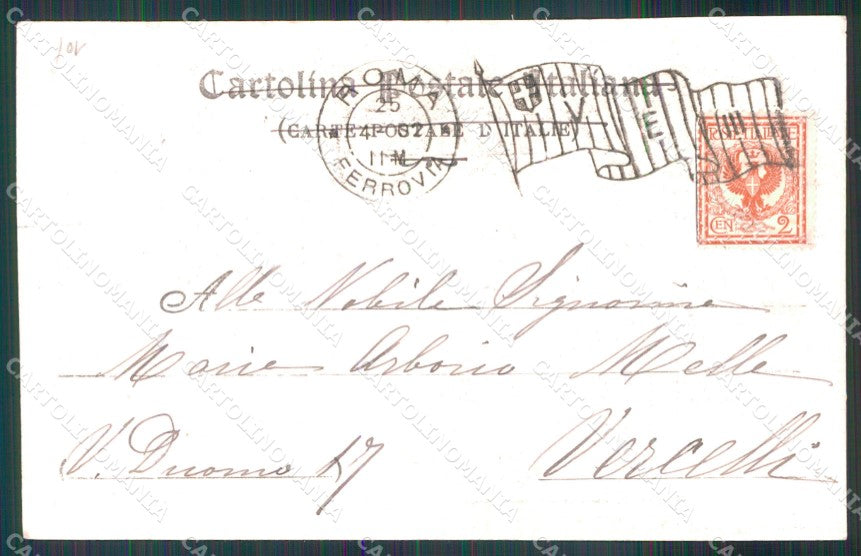 Cartolina Postale Italiana
(CARTE POSTALE D'ITALIE)
ROMA
25
4-02
11M
FERROVIA
V E III
POSTE ITALIANE
CEN 2
Alla Nobile Signorina
Maria Arborio Mella
V. Duomo 17
Vercelli
CARTOLINOMANIA